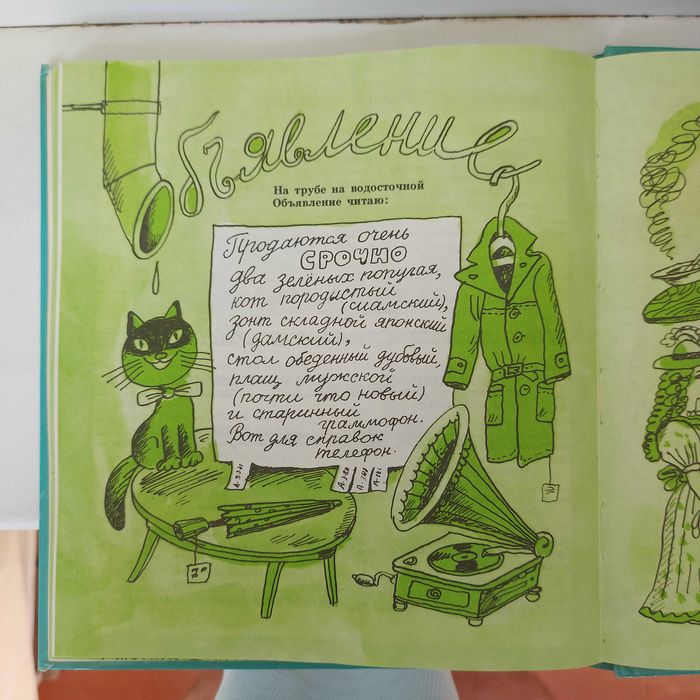 Объявление
На трубе на водосточной
Объявление читаю:
Продаются очень
СРОЧНО
два зелёных попугая,
кот породистый
(сиамский),
зонт складной японский
(дамский),
стол обеденный дубовый,
плащ мужской
(почти что новый)
и старинный
граммофон.
Вот для справок
телефон.